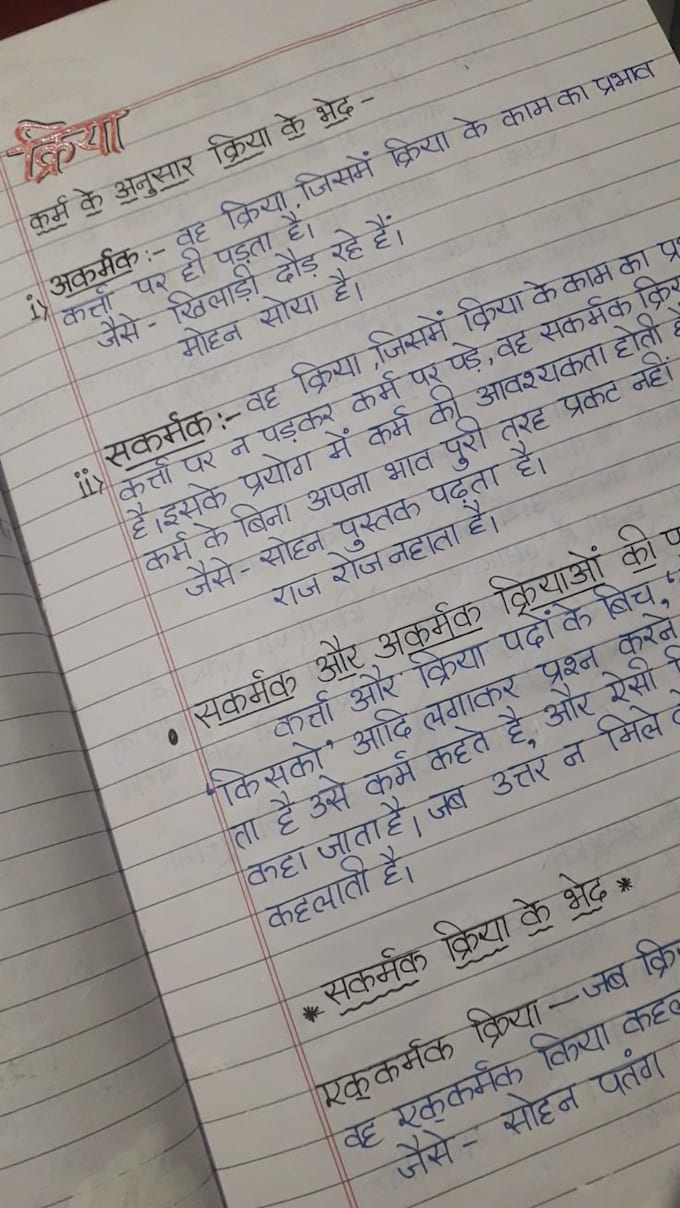 क्रिया
कर्म के अनुसार क्रिया के भेद -
i) अकर्मक :- वह क्रिया, जिसमें क्रिया के काम का प्रभाव
कर्त्ता पर ही पड़ता है।
जैसे - खिलाड़ी दौड़ रहे हैं।
मोहन सोया है।
ii) सकर्मक :- वह क्रिया, जिसमें क्रिया के काम का
कर्त्ता पर न पड़कर कर्म पर पड़े, वह सकर्मक
है। इसके प्रयोग में कर्म की आवश्यकता होती
कर्म के बिना अपना भाव पुरी तरह प्रकट नहीं
जैसे - सोहन पुस्तक पढ़ता है।
राज रोज नहाता है।
• सकर्मक और अकर्मक क्रियाओं की
कर्त्ता और क्रिया पदों के बिच,
"किसको" आदि लगाकर प्रश्न करने
ता है उसे कर्म कहते है, और ऐसी
कहा जाता है। जब उत्तर न मिले
कहलाती है।
* सकर्मक क्रिया के भेद *
एक्कर्मक क्रिया — जब
वह एक्कर्मक किया
जैसे - सोहन पतंग